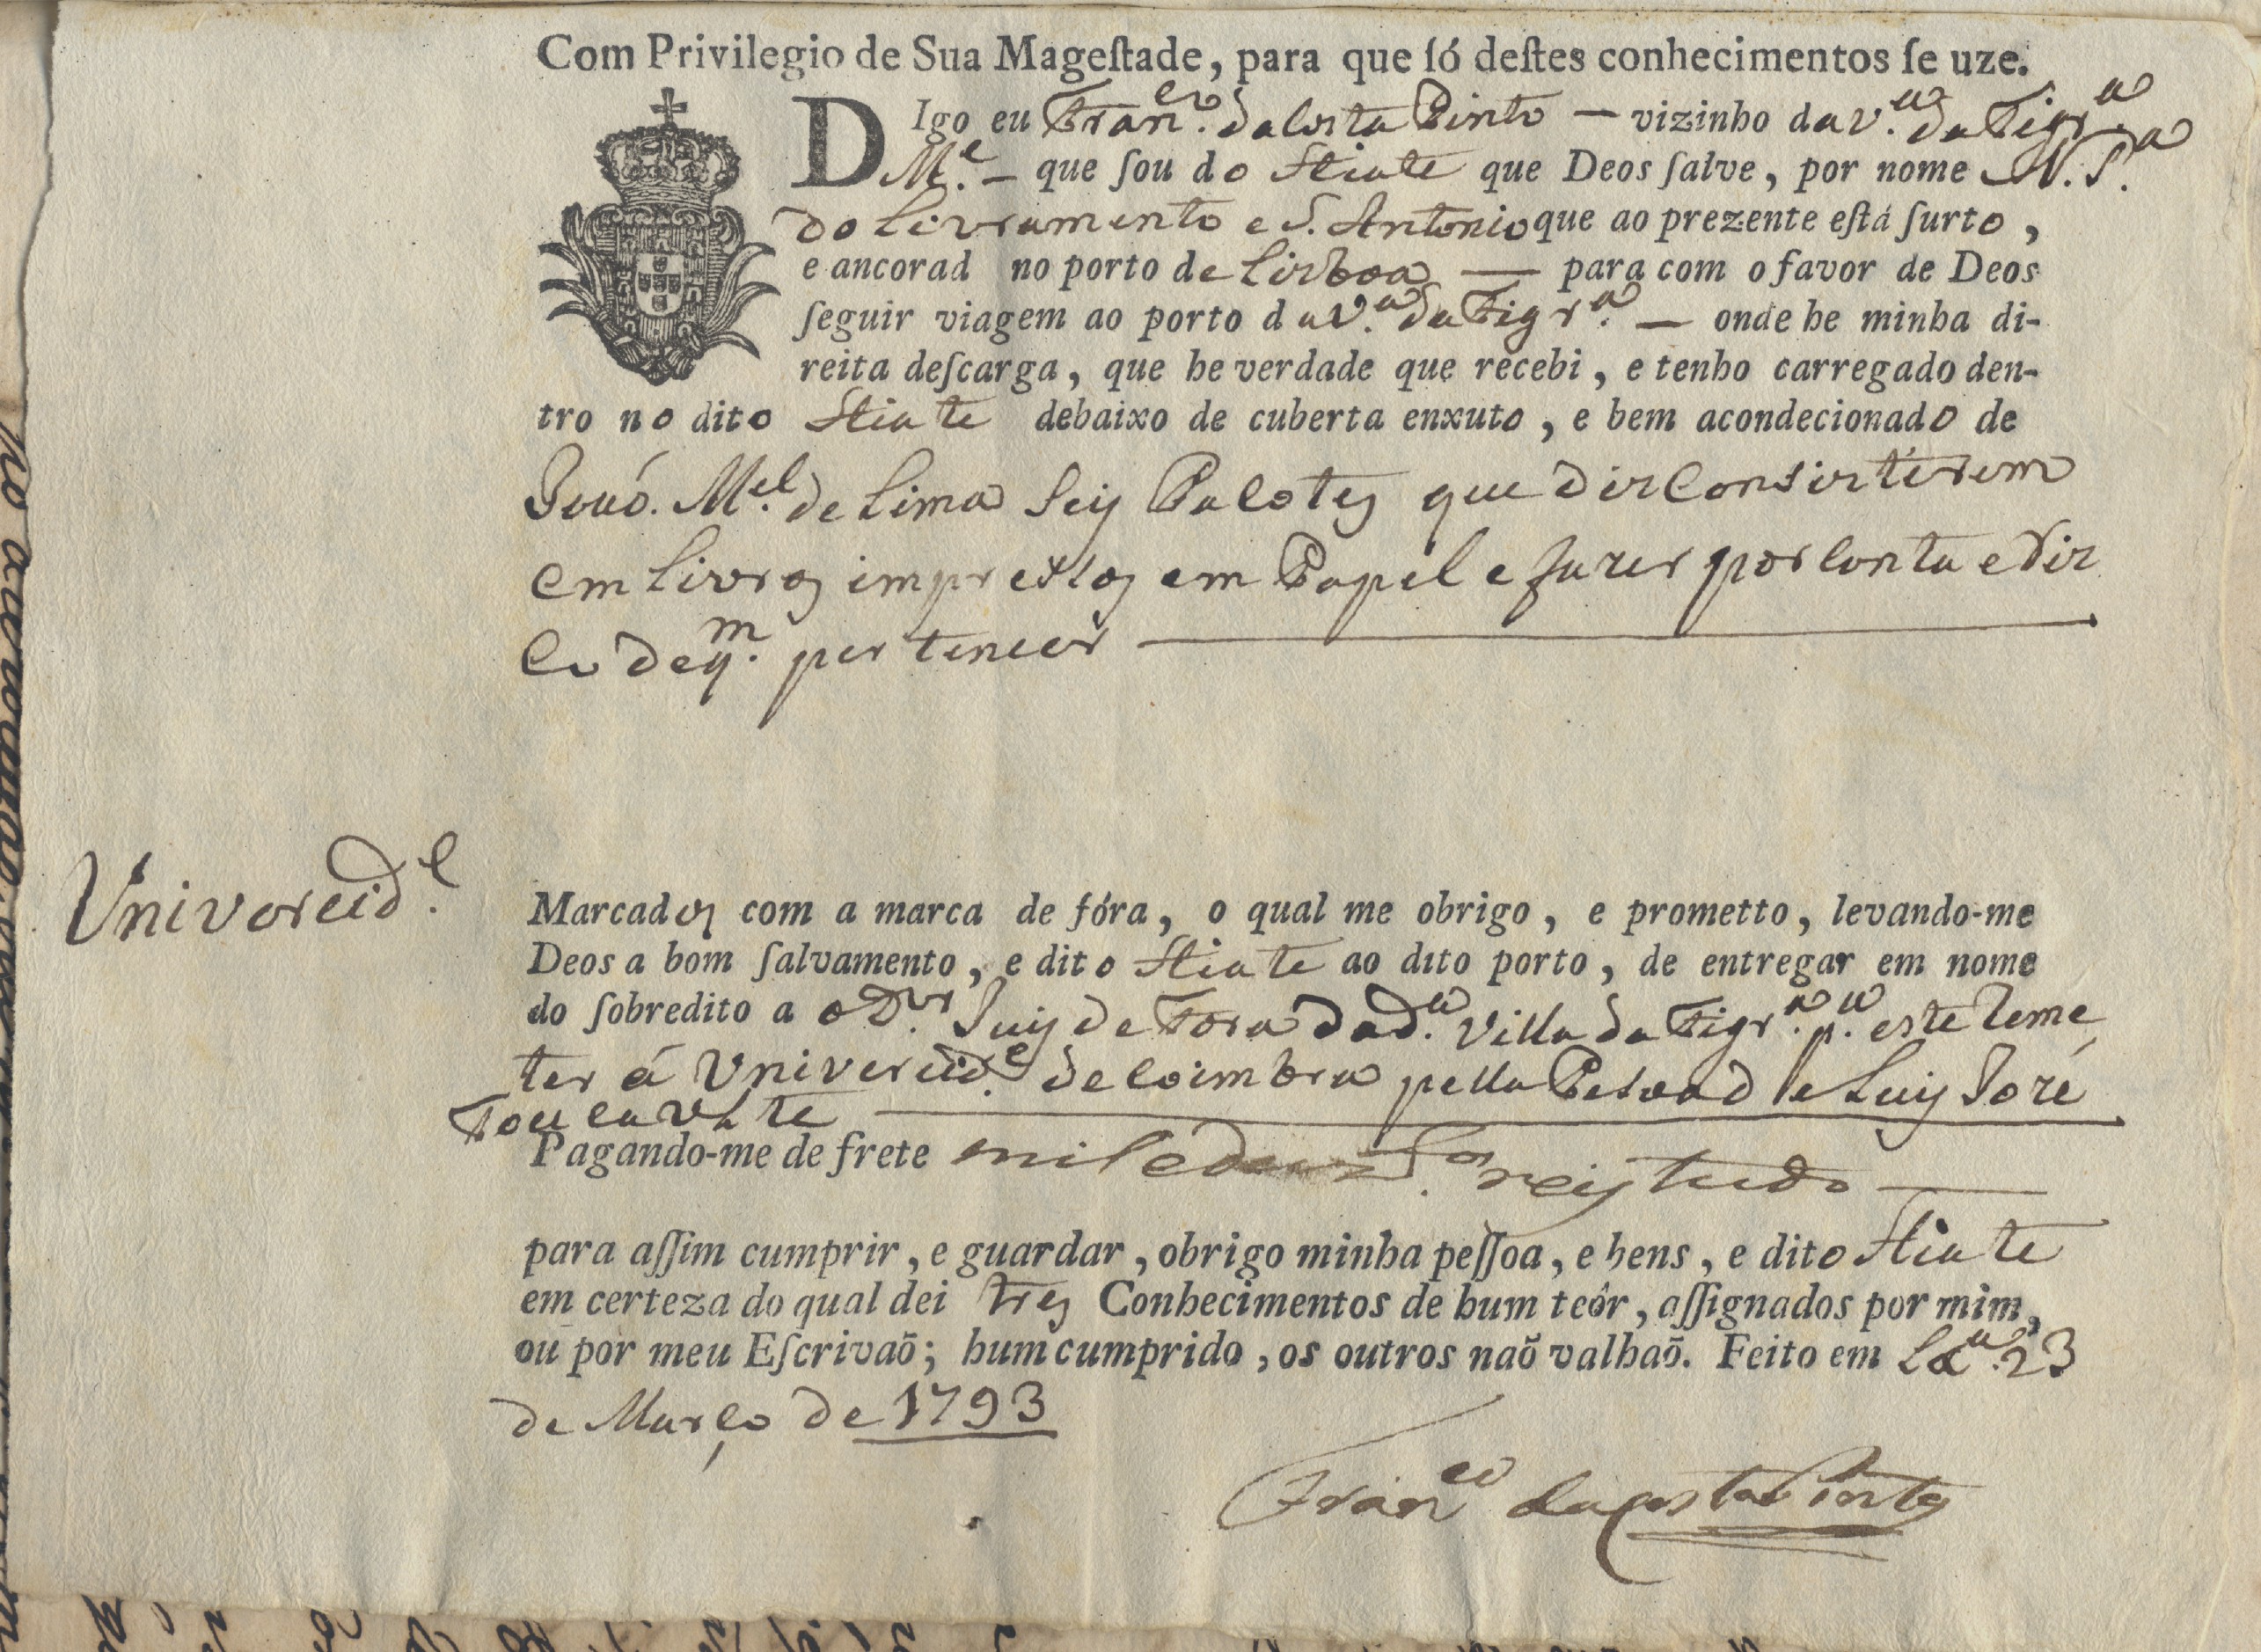 Com Privilegio de Sua Mageſtade, para que ſó deſtes conhecimentos ſe uze.
DIgo eu Fran.co da Costa Pinto — vizinho da V.a da Figr.a
M.e — que ſou do Hiate que Deos ſalve, por nome N. S.a
do Livramento e S. Antonio que ao prezente eſtá ſurto,
e ancorad no porto de Lisboa — para com o favor de Deos
ſeguir viagem ao porto da V.a da Figr.a — onde he minha di-
reita deſcarga, que he verdade que recebi, e tenho carregado den-
tro no dito Hiate debaixo de cuberta enxuto, e bem acondecionado de
João. M.el de Lima Seis Pacotes que diz Consistirem
em Livros impressos em Papel e fazer por Conta e Ris
Co de q.m pertencer
Univercid.e
Marcados com a marca de fóra, o qual me obrigo, e prometto, levando-me
Deos a bom ſalvamento, e dito Hiate ao dito porto, de entregar em nome
do ſobredito a o D.or Juis de Fora da d.a Villa da Figr.a p.a este Reme
ter á Univercid.e de Coimbra pella Pesoa de Luis Jozé
Foucavhte
Pagando-me de frete mil e reis tudo
para aſſim cumprir, e guardar, obrigo minha peſſoa, e bens, e dito Hiate
em certeza do qual dei tres Conhecimentos de hum teôr, aſſignados por mim,
ou por meu Eſcrivaõ; hum cumprido, os outros naõ valhaõ. Feito em Lx.a 23
de Março de 1793
Fran.co da Costa Pinto